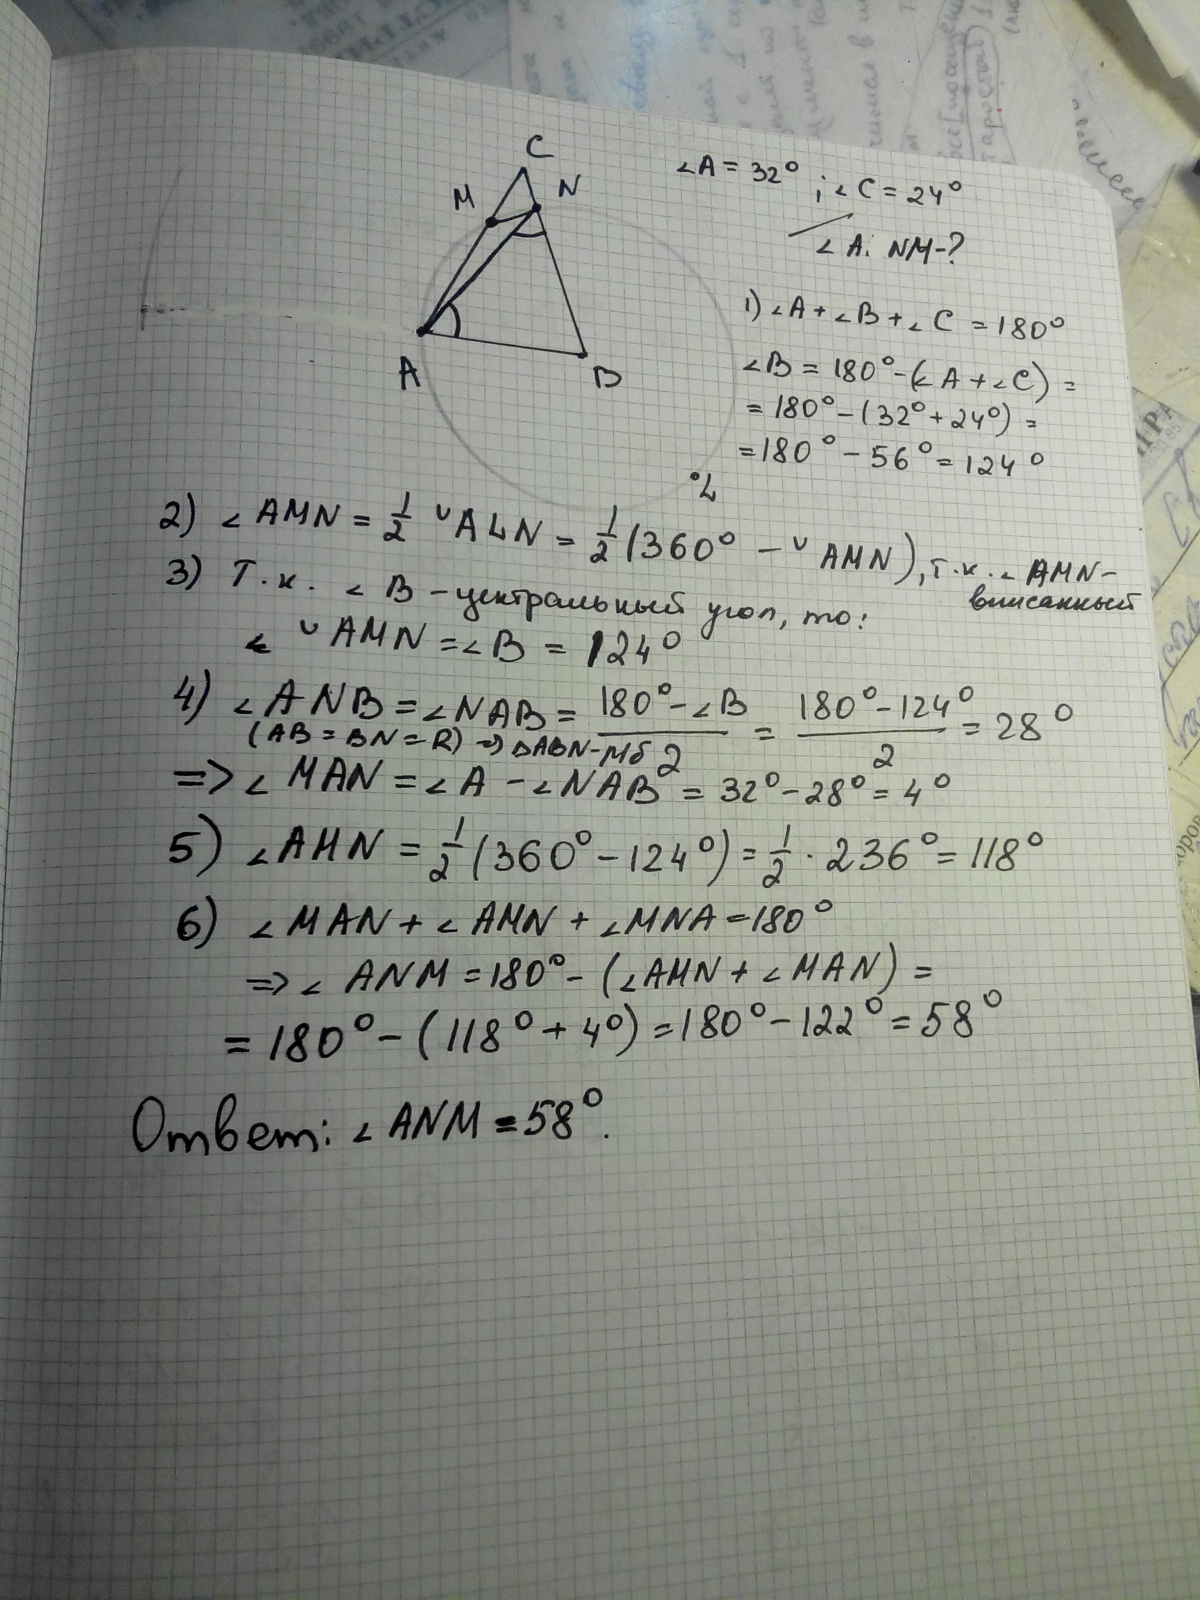 C
M N
A B
∠A = 32° ; ∠C = 24°
∠ANM-?
1) ∠A + ∠B + ∠C = 180°
∠B = 180° - (∠A + ∠C) =
= 180° - (32° + 24°) =
= 180° - 56° = 124°
L
2) ∠AMN = 1/2 ◡ALN = 1/2 (360° - ◡AMN), т.к. ∠AMN -
вписанный
3) Т.к. ∠B - центральный угол, то:
◡AMN = ∠B = 124°
4) ∠ANB = ∠NAB = (180° - ∠B)/2 = (180° - 124°)/2 = 28°
(AB = BN = R) => ΔABN - р/б
=> ∠MAN = ∠A - ∠NAB = 32° - 28° = 4°
5) ∠AMN = 1/2 (360° - 124°) = 1/2 · 236° = 118°
6) ∠MAN + ∠AMN + ∠MNA = 180°
=> ∠ANM = 180° - (∠AMN + ∠MAN) =
= 180° - (118° + 4°) = 180° - 122° = 58°
Ответ: ∠ANM = 58°.